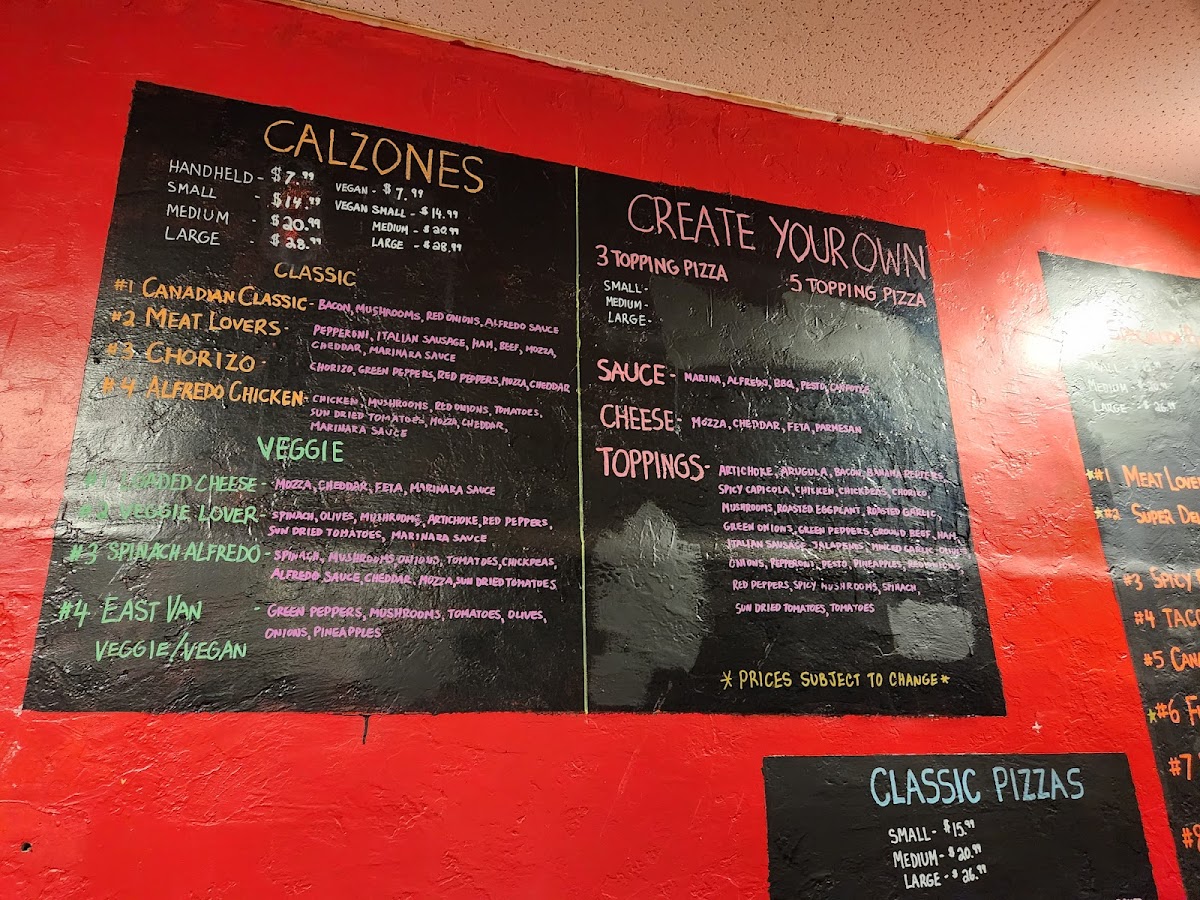 CALZONES
HANDHELD - $7.99
SMALL - $14.99
MEDIUM - $20.99
LARGE - $28.99
VEGAN - $7.99
VEGAN SMALL - $14.99
MEDIUM - $20.99
LARGE - $28.99
CLASSIC
#1 CANADIAN CLASSIC - BACON, MUSHROOMS, RED ONIONS, ALFREDO SAUCE
#2 MEAT LOVERS - PEPPERONI, ITALIAN SAUSAGE, HAM, BEEF, MOZZA,
CHEDDAR, MARINARA SAUCE
#3 CHORIZO - CHORIZO, GREEN PEPPERS, RED PEPPERS, MOZZA, CHEDDAR
#4 ALFREDO CHICKEN - CHICKEN, MUSHROOMS, RED ONIONS, TOMATOES,
SUN DRIED TOMATOES, MOZZA, CHEDDAR,
MARINARA SAUCE
VEGGIE
#1 LOADED CHEESE - MOZZA, CHEDDAR, FETA, MARINARA SAUCE
#2 VEGGIE LOVER - SPINACH, OLIVES, MUSHROOMS, ARTICHOKE, RED PEPPERS,
SUN DRIED TOMATOES, MARINARA SAUCE
#3 SPINACH ALFREDO - SPINACH, MUSHROOMS ONIONS, TOMATOES, CHICKPEAS,
ALFREDO SAUCE, CHEDDAR, MOZZA, SUN DRIED TOMATOES
#4 EAST VAN - GREEN PEPPERS, MUSHROOMS, TOMATOES, OLIVES,
VEGGIE/VEGAN ONIONS, PINEAPPLES
CREATE YOUR OWN
3 TOPPING PIZZA
5 TOPPING PIZZA
SMALL -
MEDIUM -
LARGE -
SAUCE - MARINA, ALFREDO, BBQ, PESTO, CHIPOTLE
CHEESE - MOZZA, CHEDDAR, FETA, PARMESAN
TOPPINGS - ARTICHOKE, ARUGULA, BACON, BANANA PEPPERS,
SPICY CAPICOLA, CHICKEN, CHICKPEAS, CHORIZO,
MUSHROOMS, ROASTED EGGPLANT, ROASTED GARLIC,
GREEN ONIONS, GREEN PEPPERS, GROUND BEEF, HAM,
ITALIAN SAUSAGE, JALAPENOS, MINCED GARLIC, OLIVES
ONIONS, PEPPERONI, PESTO, PINEAPPLES,
RED PEPPERS, SPICY MUSHROOMS, SPINACH,
SUN DRIED TOMATOES, TOMATOES
*PRICES SUBJECT TO CHANGE*
CLASSIC PIZZAS
SMALL - $15.99
MEDIUM - $20.99
LARGE - $26.99
MEDIUM -
LARGE - $26.99
*#1 MEAT LOVE
*#2 SUPER
#3 SPICY
#4 TACO
#5 CAN
*#6 F
#7